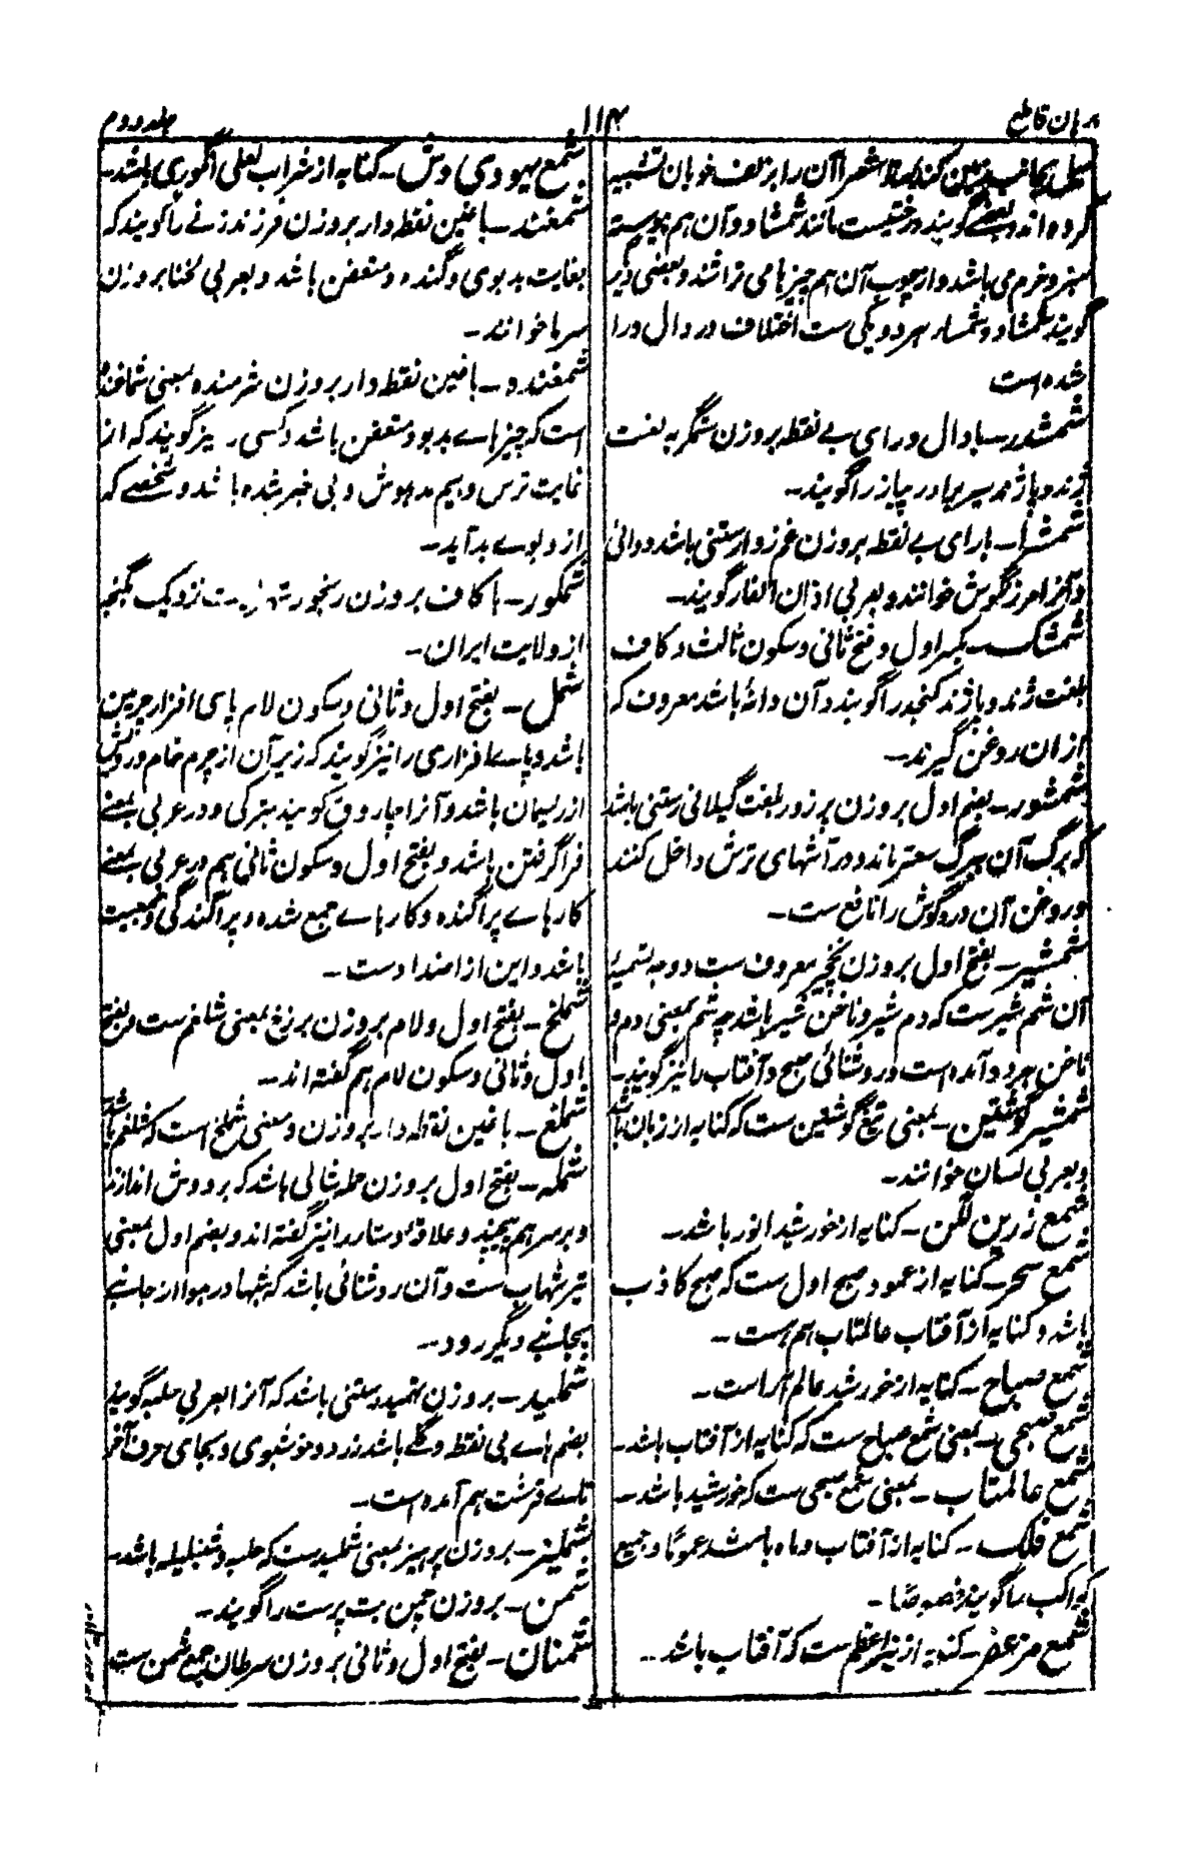 برهان قاطع
۱۱۴
جلد دوم
میل بجانب زمین کند لهذا شعرا آن را بزلف خوبان تشبیه
کرده اند و بعضے گویند درختیست مانند شمشاد و آن هم پیوسته
سبز و خرم می باشد و از چوب آن هم چیزها می تراشند و بعضی دیگر
گویند شمشاد و شمسار هر دو یکی ست اختلاف در دال و را
شده است
شمشدر ـ با دال و رای بے نقطه بروزن شمگر به لغت
ژند و پاژند سیر برادر پیاز را گویند ـ
شمشرا ـ بارای بے نقطه بروزن غم زدا رستنی باشد دوائی
و آنرا مرزنگوش خوانند و بعربی اذان الفار گویند ـ
شمشک ـ بکسر اول و فتح ثانی و سکون ثالث و کاف
بلغت ژند و پاژند کنجد را گویند و آن دانۀ باشد معروف که
ازان روغن گیرند ـ
شمشور ـ بضم اول بروزن پرزور بلغت گیلانی رستنی باشد
که برگ آن ببرگ سعتر ماند و در آشهای ترش داخل کنند
و روغن آن درد گوش را نافع ست ـ
شمشیر ـ بفتح اول بروزن نخچیر معروف ست و وجه تسمیۀ
آن شم شیر ست که دم شیر و ناخن شیر باشد چه شم بمعنی دم و
ناخن هر دو آمده است و روشنائی صبح و آفتاب را نیز گویند ـ
شمشیر گوشتین ـ بمعنی تیغ گوشتین ست که کنایه از زبان باشد
و بعربی لسان خوانند ـ
شمع زرین لگن ـ کنایه از خورشید انور باشد ـ
شمع سحر ـ کنایه از عمود صبح اول ست که صبح کاذب
باشد و کنایه از آفتاب عالمتاب هم هست ـ
شمع صباح ـ کنایه از خورشید عالم آراست ـ
شمع صبحی ـ بمعنی شمع صباح ست که کنایه از آفتاب باشد ـ
شمع عالمتاب ـ بمعنی شمع صبحی ست که خورشید باشد ـ
شمع فلک ـ کنایه از آفتاب و ماه باشد عموماً و جمیع
کواکب را گویند خصوصاً ـ
شمع مزعفر ـ کنایه از نیر اعظم ست که آفتاب باشد ـ
شمع یهودی وش ـ کنایه از شراب لعلی انگوری باشد ـ
شمغند ـ با غین نقطه دار بروزن فرزند زنے را گویند که
بغایت بدبوی و گنده و متعفن باشد و بعربی لخنا بروزن
سرما خوانند ـ
شمغنده ـ با غین نقطه دار بروزن شرمنده بمعنی شماغنده
است که چیزهاے بدبو و متعفن باشد و کسی را نیز گویند که از
نهایت ترس و بیم مدهوش و بی خبر شده باشد و شخصے که
از و بوے بد آید ـ
شمکور ـ با کاف بروزن رنجور شهریست نزدیک بگنجه
از ولایت ایران ـ
شمل ـ بفتح اول و ثانی و سکون لام پای افزار چرمین
باشد و پاے افزاری را نیز گویند که زیر آن از چرم خام و رویش
از ریسمان باشد و آنرا چاروق گویند بترکی و در عربی بمعنے
فراگرفتن باشد و بفتح اول و سکون ثانی هم در عربی بمعنے
کارهاے پراگنده و کارهاے جمع شده و پراگندگی و جمعیت
باشد و این از اضداد ست ـ
شملخ ـ بفتح اول و لام بروزن برزخ بمعنی شلغم ست و بفتح
اول و ثانی و سکون لام هم گفته اند ـ
شملغ ـ با غین نقطه دار بروزن و معنی شملخ است که شلغم باشد
شمله ـ بفتح اول بروزن حمله شالی باشد که بر دوش اندازند
و بر سر هم پیچند و علاقۀ دستار را نیز گفته اند و بضم اول بمعنی
تیر شهاب ست و آن روشنائی باشد که شبها در هوا از جانبے
بجانبے دیگر رود ـ
شملید ـ بروزن تمهید رستنی باشد که آنرا بعربی حلبه گویند
بضم حاے بی نقطه و گلے باشد زرد و خوشبوی و بجای حرف آخر
تاے قرشت هم آمده است ـ
شملیز ـ بروزن پرهیز بمعنی شملید ست که حلبه و شنبلیله باشد ـ
شمن ـ بروزن چمن بت پرست را گویند ـ
شمنان ـ بفتح اول و ثانی بروزن سرطان جمع شمن ست